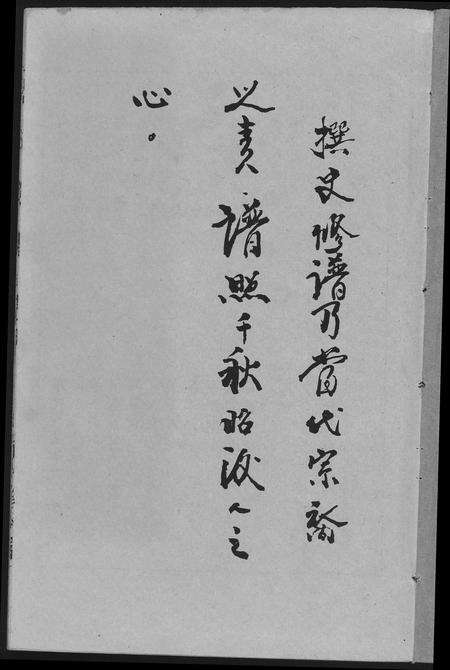 撰史修譜乃當代宗裔
之责.譜照千秋昭後人之
心。